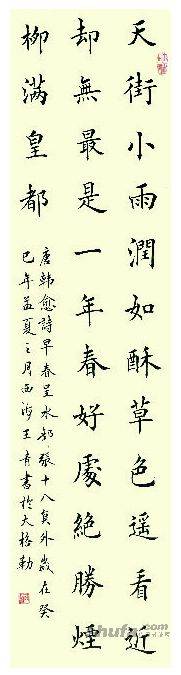 天街小雨潤如酥草色遥看近
却無最是一年春好處絶勝煙
柳滿皇都
唐韓愈詩早春呈水部張十八員外歲在癸
巳年孟夏之月西海王青書於大格勒